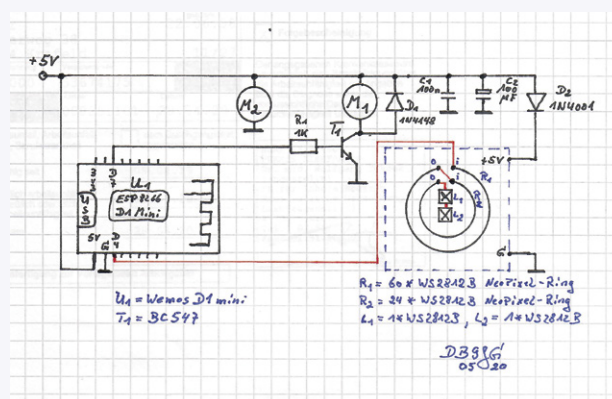 +5V
M2
M1
R1
1K
T1
D1
1N4148
C1
100n
C2
100
µF
D2
1N4001
3
V
3
D
7
U1
ESP8266
D1 Mini
U
S
B
5V
G
D
4
+5V
o
i
R1
o
i
R2
L1
L2
G
U1 = Wemos D1 mini
T1 = BC547
R1 = 60 * WS2812B NeoPixel-Ring
R2 = 24 * WS2812B NeoPixel-Ring
L1 = 1*WS2812B, L2 = 1*WS2812B
05 20